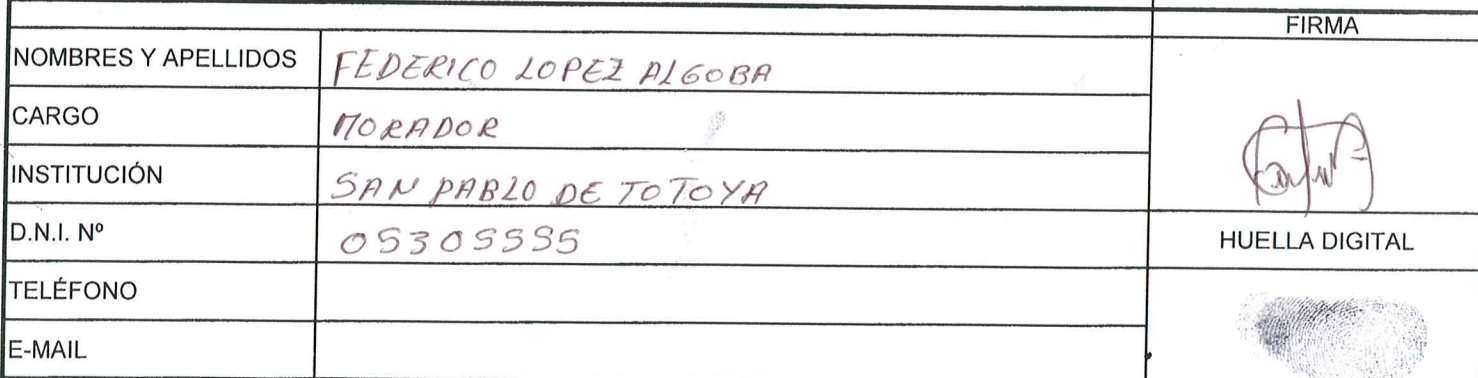 FIRMA
NOMBRES Y APELLIDOS FEDERICO LOPEZ ALGOBA
CARGO MORADOR
INSTITUCIÓN SAN PABLO DE TOTOYA
D.N.I. Nº 05305595
HUELLA DIGITAL
TELÉFONO
E-MAIL